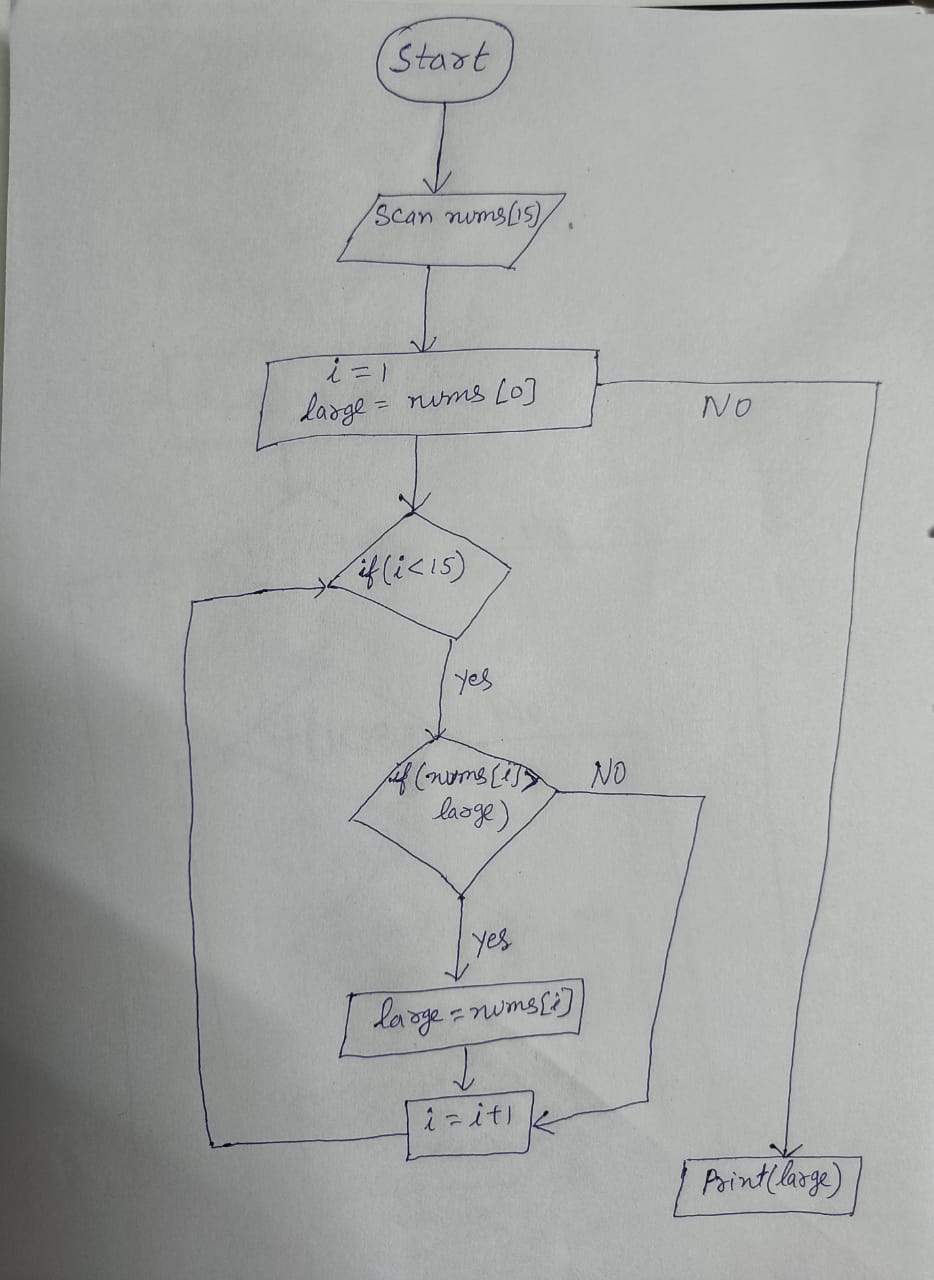 Start
Scan nums[15]
i = 1
large = nums [0]
NO
if(i<15)
yes
if(nums[i]>
large)
NO
yes
large = nums[i]
i = i+1
Print(large)